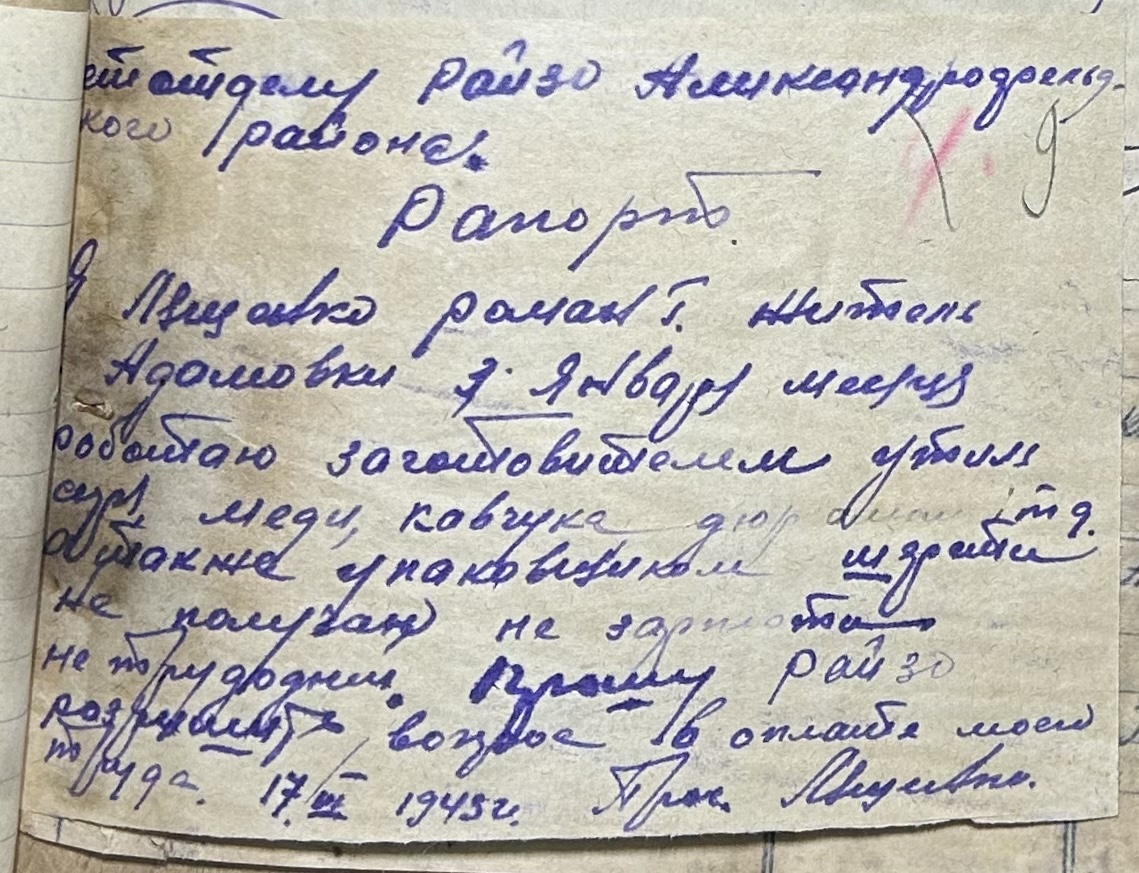 отделу Райзо Александродрельд-
кого района.
Рапорт.
Я Роман Г. житель
Адамовки з Января месяца
работаю заготовителем утиль
сыр, меди, кавчука дюр итд.
а также упаковщиком шерсти
не получаю не зарплоти
не трудодни. Прошу Райзо
разришить вопрос в оплате моей
труда. 17/III 1943г. Прос.